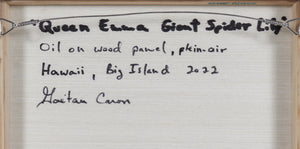 Queen Emma Giant Spider Lily
Oil on wood panel, plein air
Hawaii, Big Island 2022
Gaetan Caron